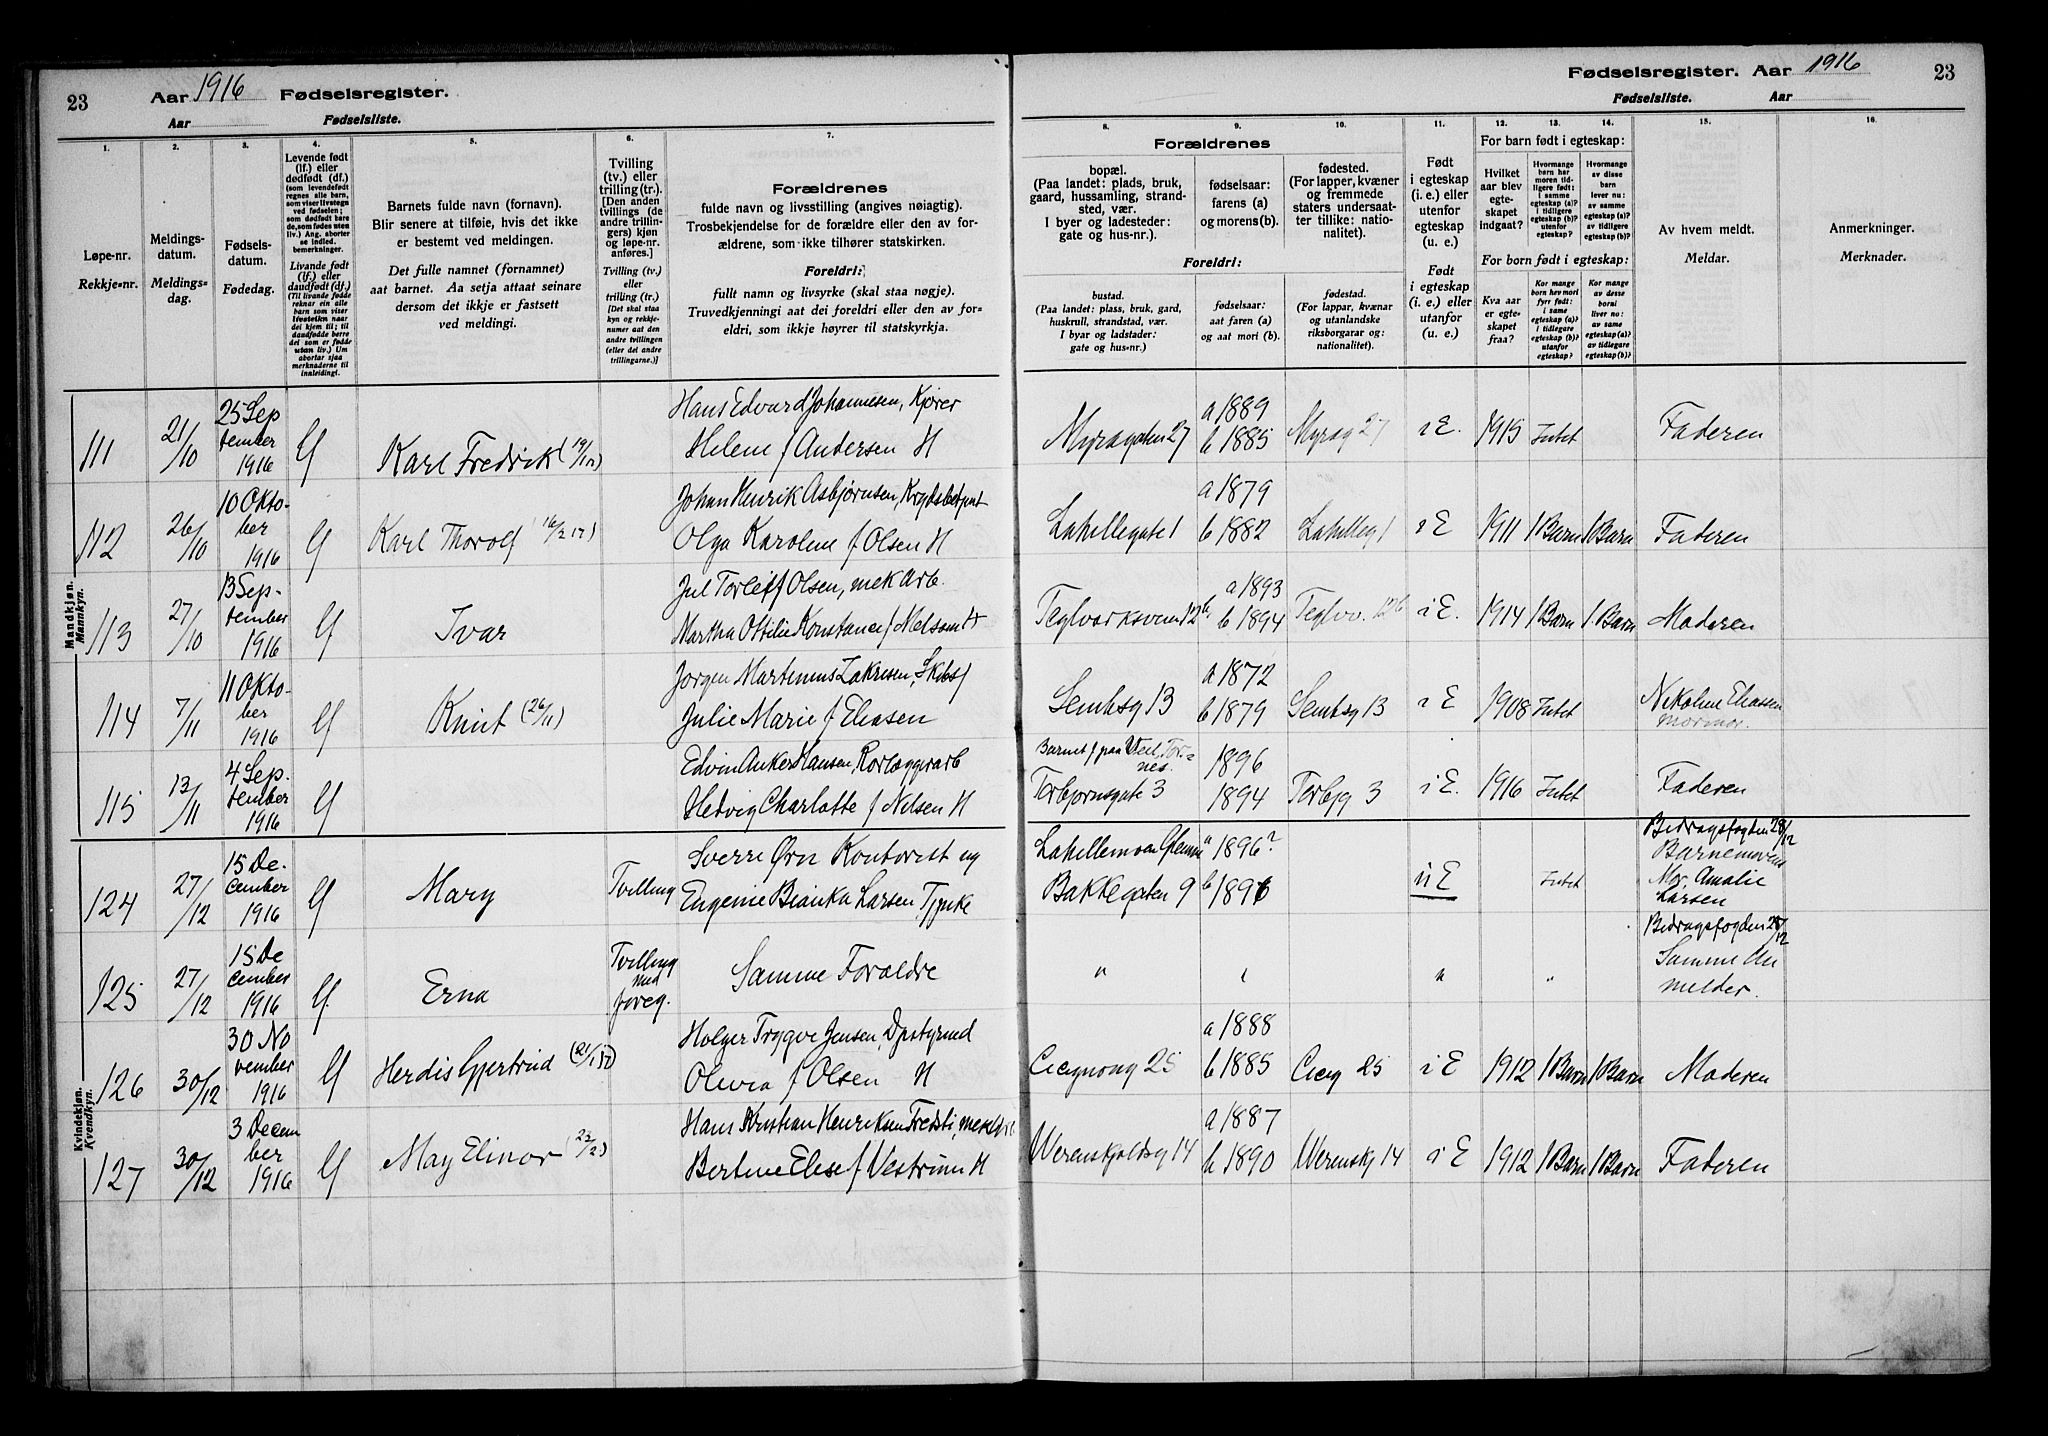 23
Aar 1916 Fødselsregister.
Aar Fødselsliste.
1.
Løpe-nr.
Rekkje-nr.
2.
Meldings-
datum.
Meldings-
dag.
3.
Fødsels-
datum.
Fødedag.
4.
Levende født
(lf.) eller
dødfødt (df.)
(som levendefødt
regnes alle barn,
som viser livstegn
ved fødselen;
som dødfødt bare
de, som fødes uten
liv.) Ang. aborter
se indled.
bemerkninger.
Livande født
(lf.) eller
daudfødt (df.)
(Til livande fødde
reknar ein alle
barn som viser
livsteikn naar
dei kjem til; til
daudfødde berre
dei som er fødde
utan liv.) Um
abortar sjaa
merknaderne til
innleidingi.
5.
Barnets fulde navn (fornavn).
Blir senere at tilføie, hvis det ikke
er bestemt ved meldingen.
Det fulle namnet (fornamnet)
aat barnet. Aa setja attaat seinare
dersom det ikkje er fastsett
ved meldingi.
6.
Tvilling
(tv.) eller
trilling (tr.)
[Den anden
tvillings (de
andre trillin-
gers) kjøn
og løpe-nr.
anføres.]
Tvilling (tv.)
eller
trilling (tr.)
[Det skal staa
kyn og rekkje-
numer aat den
andre tvillingen
(eller dei andre
trillingarne.)]
7.
Forældrenes
fulde navn og livsstilling (angives nøiagtig).
Trosbekjendelse for de forældre eller den av for-
ældrene, som ikke tilhører statskirken.
Foreldri:
fullt namn og livsyrke (skal staa nøgje).
Truvedkjenningi aat dei foreldri eller den av for-
eldri, som ikkje høyrer til statskyrkja.
Mandkjøn.
Mannkyn.
111 21/10 25 Sep
tember
1916 lf Karl Fredrik Hans Edvard Johannesen, Kjører
Helene f Andersen H
112 26/10 10 Okto-
ber
1916 lf Karl Thorolf Johan Henrik Asbjørnsen,
Olga Karoline f Olsen H
113 27/10 13 Sep-
tember
1916 lf Ivar Jul Torleif Olsen, mek Arb.
Martha Ottilie Konstance f Nelsen H
114 7/11 11 Okto-
ber
1916 lf Knut (26/11) Jørgen Martinius Zakrisen,
Julie Marie f Eliasen
115 13/11 4 Sep-
tember
1916 lf Edvin Anker Hansen, Rørlæggerarb
Hedvig Charlotte f Nilsen H
Kvindekjøn.
Kvendkyn.
124 27/12 15 De-
cember
1916 lf Mary Tvilling Sverre Ørn Kontorist og
Eugenie Bianka Larsen,
125 27/12 15 De
cember
1916 lf Erna Tvilling
med
foreg. Samme Forældre
126 30/12 30 No
vember
1916 lf Herdis Gjertrud Holger Trygve Jensen,
Olivia f Olsen H
127 30/12 3 Decem
ber
1916 lf May Elinor Hans Kristian Henriksen
Bertine Elise f Vestrum H
Fødselsregister. Aar 1916 23
Fødselsliste. Aar
8.
Forældrenes
bopæl.
(Paa landet: plads, bruk,
gaard, hussamling, strand-
sted, vær.
I byer og ladesteder:
gate og hus-nr.).
Foreldri:
bustad.
(Paa landet: plass, bruk, gard,
huskrull, strandstad, vær.
I byar og ladstader:
gate og hus-nr.)
9.
fødselsaar:
farens (a)
og morens (b).
fødselsaar:
aat faren (a)
og aat mori (b).
10.
fødested.
(For lapper, kvæner
og fremmede
staters undersaat-
ter tillike: natio-
nalitet).
fødestad.
(For lappar, kvænar
og utanlandske
riksborgarar og:
nationalitet).
11.
Født
i egteskap
(i. e.) eller
utenfor
egteskap
(u. e.)
Født
i egteskap
(i. e.) eller
utanfor
(u. e.)
For barn født i egteskap:
12.
Hvilket
aar blev
egte-
skapet
indgaat?
13.
Hvormange
barn har
moren tid-
ligere født:
i samme
egteskap (a)?
i tidligere
egteskap (b)?
utenfor
egteskap?
14.
Hvormange
av disse
barn
lever nu:
av samme
egteskap (a)?
av tidligere
egteskap (b)?
For born født i egteskap:
Kva aar
er egte-
skapet
fraa?
Kor mange
born hev mori
fyrr født:
i same
egteskap (a)?
i tidlegare
egteskap (b)?
utanfor
egteskap?
Kor mange
av desse
borni
liver no:
av same
egteskap (a)?
av tidlegare
egteskap (b)?
15.
Av hvem meldt.
Meldar.
16.
Anmerkninger.
Merknader.
Myragaten 27 a 1889
b 1885 Myrag 27 i E. 1915 Intet Faderen
Lahellegate 1 a 1879
b 1882 Lahelleg 1 i E 1911 1 Barn 1 Barn Faderen
Teglverksveien 12b a 1893
b 1894 Teglvv. 12b i E. 1914 1 Barn 1 Barn Moderen
Sembsg 13 a 1872
b 1879 Sembsg 13 i E 1908 Intet Nikoline Eliassen
mormor.
Barnet f paa
Torbjornsgate 3 1896
1894 Torbjg 3 i E. 1916 Intet Faderen
Bakkegaten 9 a 1896?
b 1896 u E Intet Bidragsfogden 28/12
Barnemorens
Mor, Amalie
Larsen
" " " " Bidragsfogden 28/12
Samme An
melder.
Cicignong 25 a 1888
b 1885 Cicig 25 i E 1912 1 Barn 1 Barn Moderen
Werenskjoldsg 14 a 1887
b 1890 Werenskg 14 i E 1912 1 Barn 1 Barn Faderen